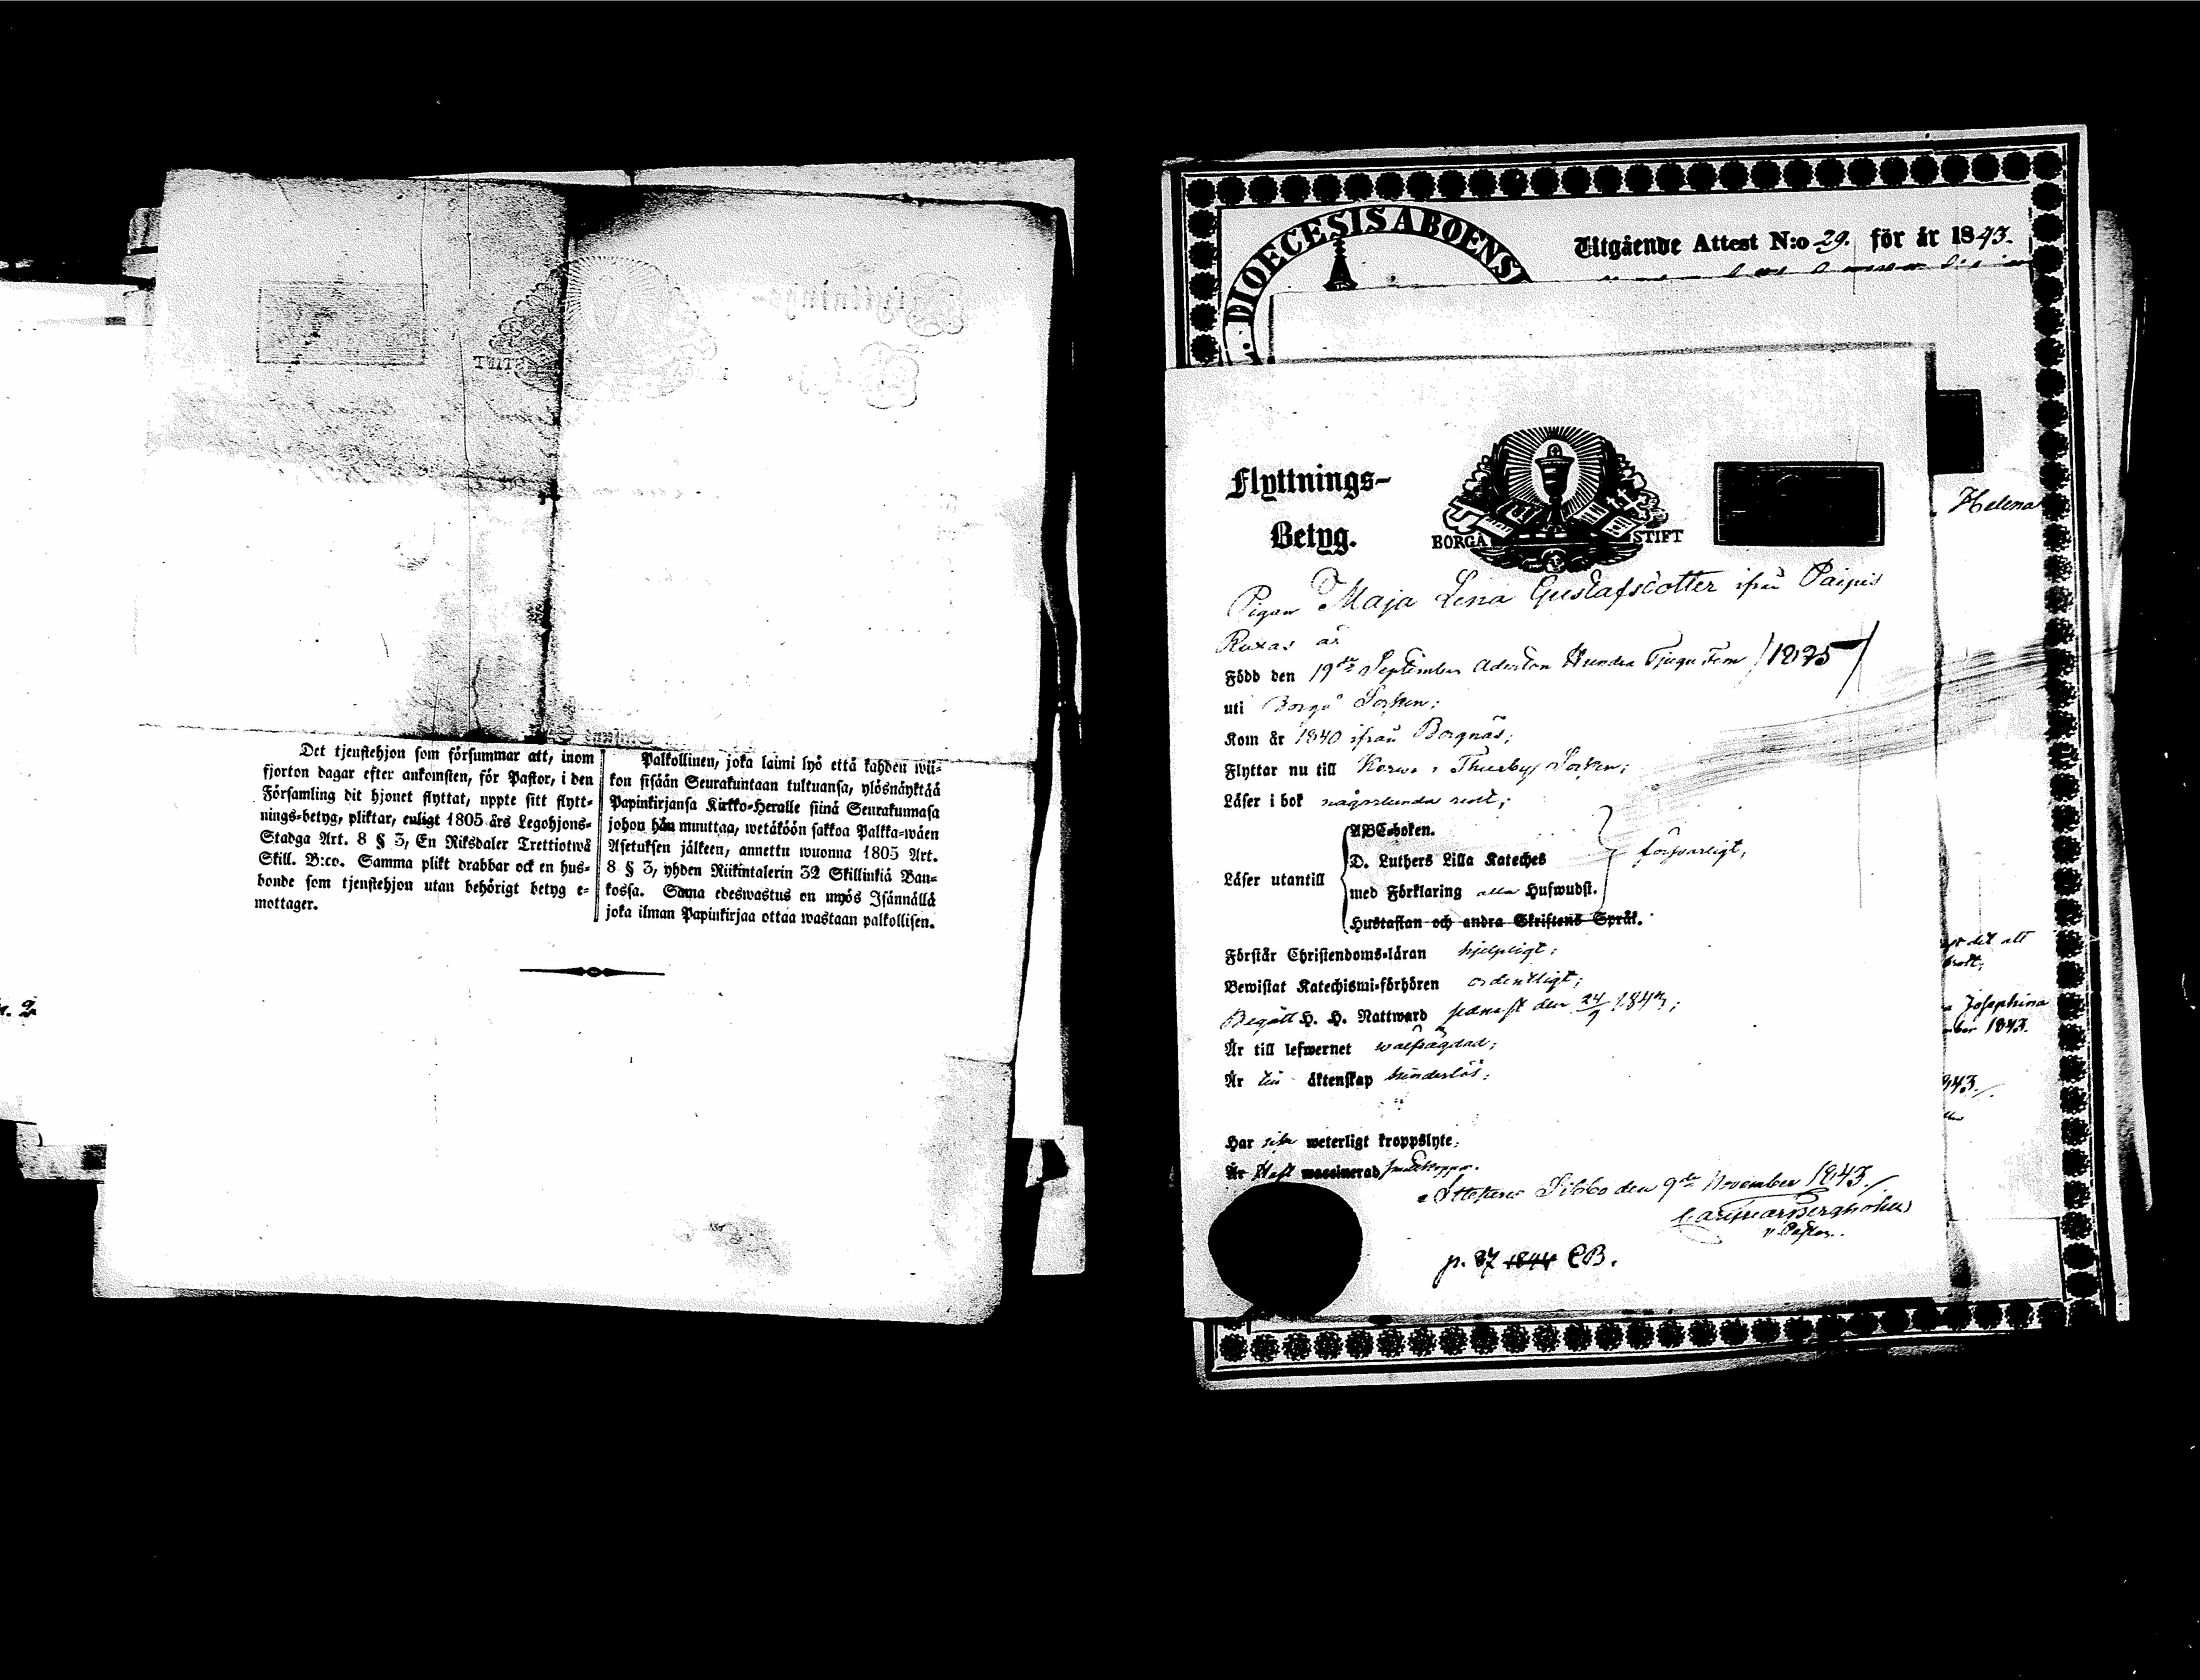 Det tjenstehjon som försummar att, inom
fjorton dagar efter ankomsten, för Pastor, i den
Församling dit hjonet flyttat, uppte sitt flytt-
nings-betyg, pliktar, enligt 1805 års Legohjons-
Stadga Art. 8 § 3, En Riksdaler Trettiotwå
Skill. B:co. Samma plikt drabbar ock en hus-
bonde som tjenstehjon utan behörigt betyg e-
mottager.
Palkollinen, joka laimi lyö että kahden wii-
kon sisään Seurakuntaan tultuansa, ylösnäyktää
Papinkirjansa Kirkko-Heralle siinä Seurakunnasa
johon hän muuttaa, wetäköön sakkoa Palkka-wäen
Asetuksen jälkeen, annettu wuonna 1805 Art.
8 § 3, yhden Riikintalerin 32 Skillinkiä Ban-
kossa. Sama edeswastus on myös Isännällä
joka ilman Papinkirjaa ottaa wastaan palkollisen.
DIOECESIS ABOENS
Utgående Attest N:o 29. för år 1843.
Flyttnings-
Betyg.
BORGÅ STIFT
Helena
Pigan Maja Lena Gustafsdotter ifrån Paipis
är
Född den 19de September Aderton Hundra Tjugu Fem /1825/
uti Borgå Socken;
Kom år 1840 ifrån Borgnäs;
Flyttar nu till Thusby Socken;
Läser i bok någorlunda rent;
ABC-boken.
D. Luthers Lilla Kateches
Läser utantill
med Förklaring alla Hufwudst.
Hustaflan och andra Skriftens Språk.
försvarligt,
Förstår Christendoms-läran hjelpligt;
Bewistat Katechismi-förhören ordentligt;
Begått H. H. Nattward senast den 24/9 1843;
Är till lefwernet wälfrägdad;
Är till äktenskap hinderlös;
Har icke weterligt kroppslyte;
Är Haft waccinerad Smittkoppor.
Attesterar Sibbo den 9de November 1843./
v. Pastor.
p. 37 1844 CB.
det att
Josephina
1843.